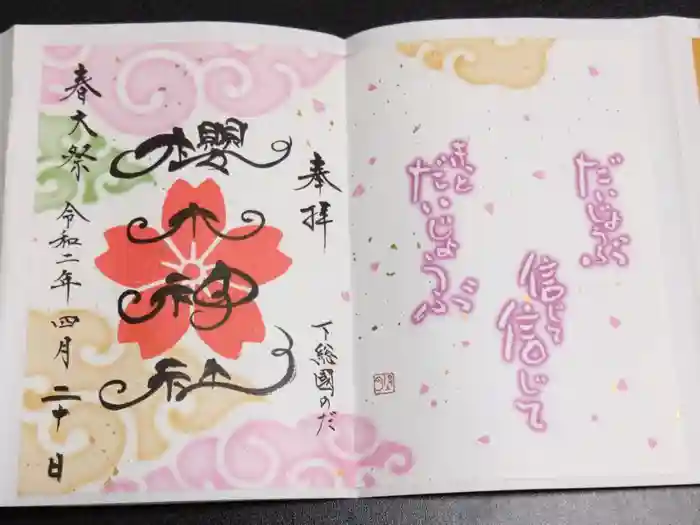 奉拝
下総國のだ
櫻木神社
春大祭
令和二年四月二十日
だいじょうぶ
信じて
信じて
きっと
だいじょうぶ